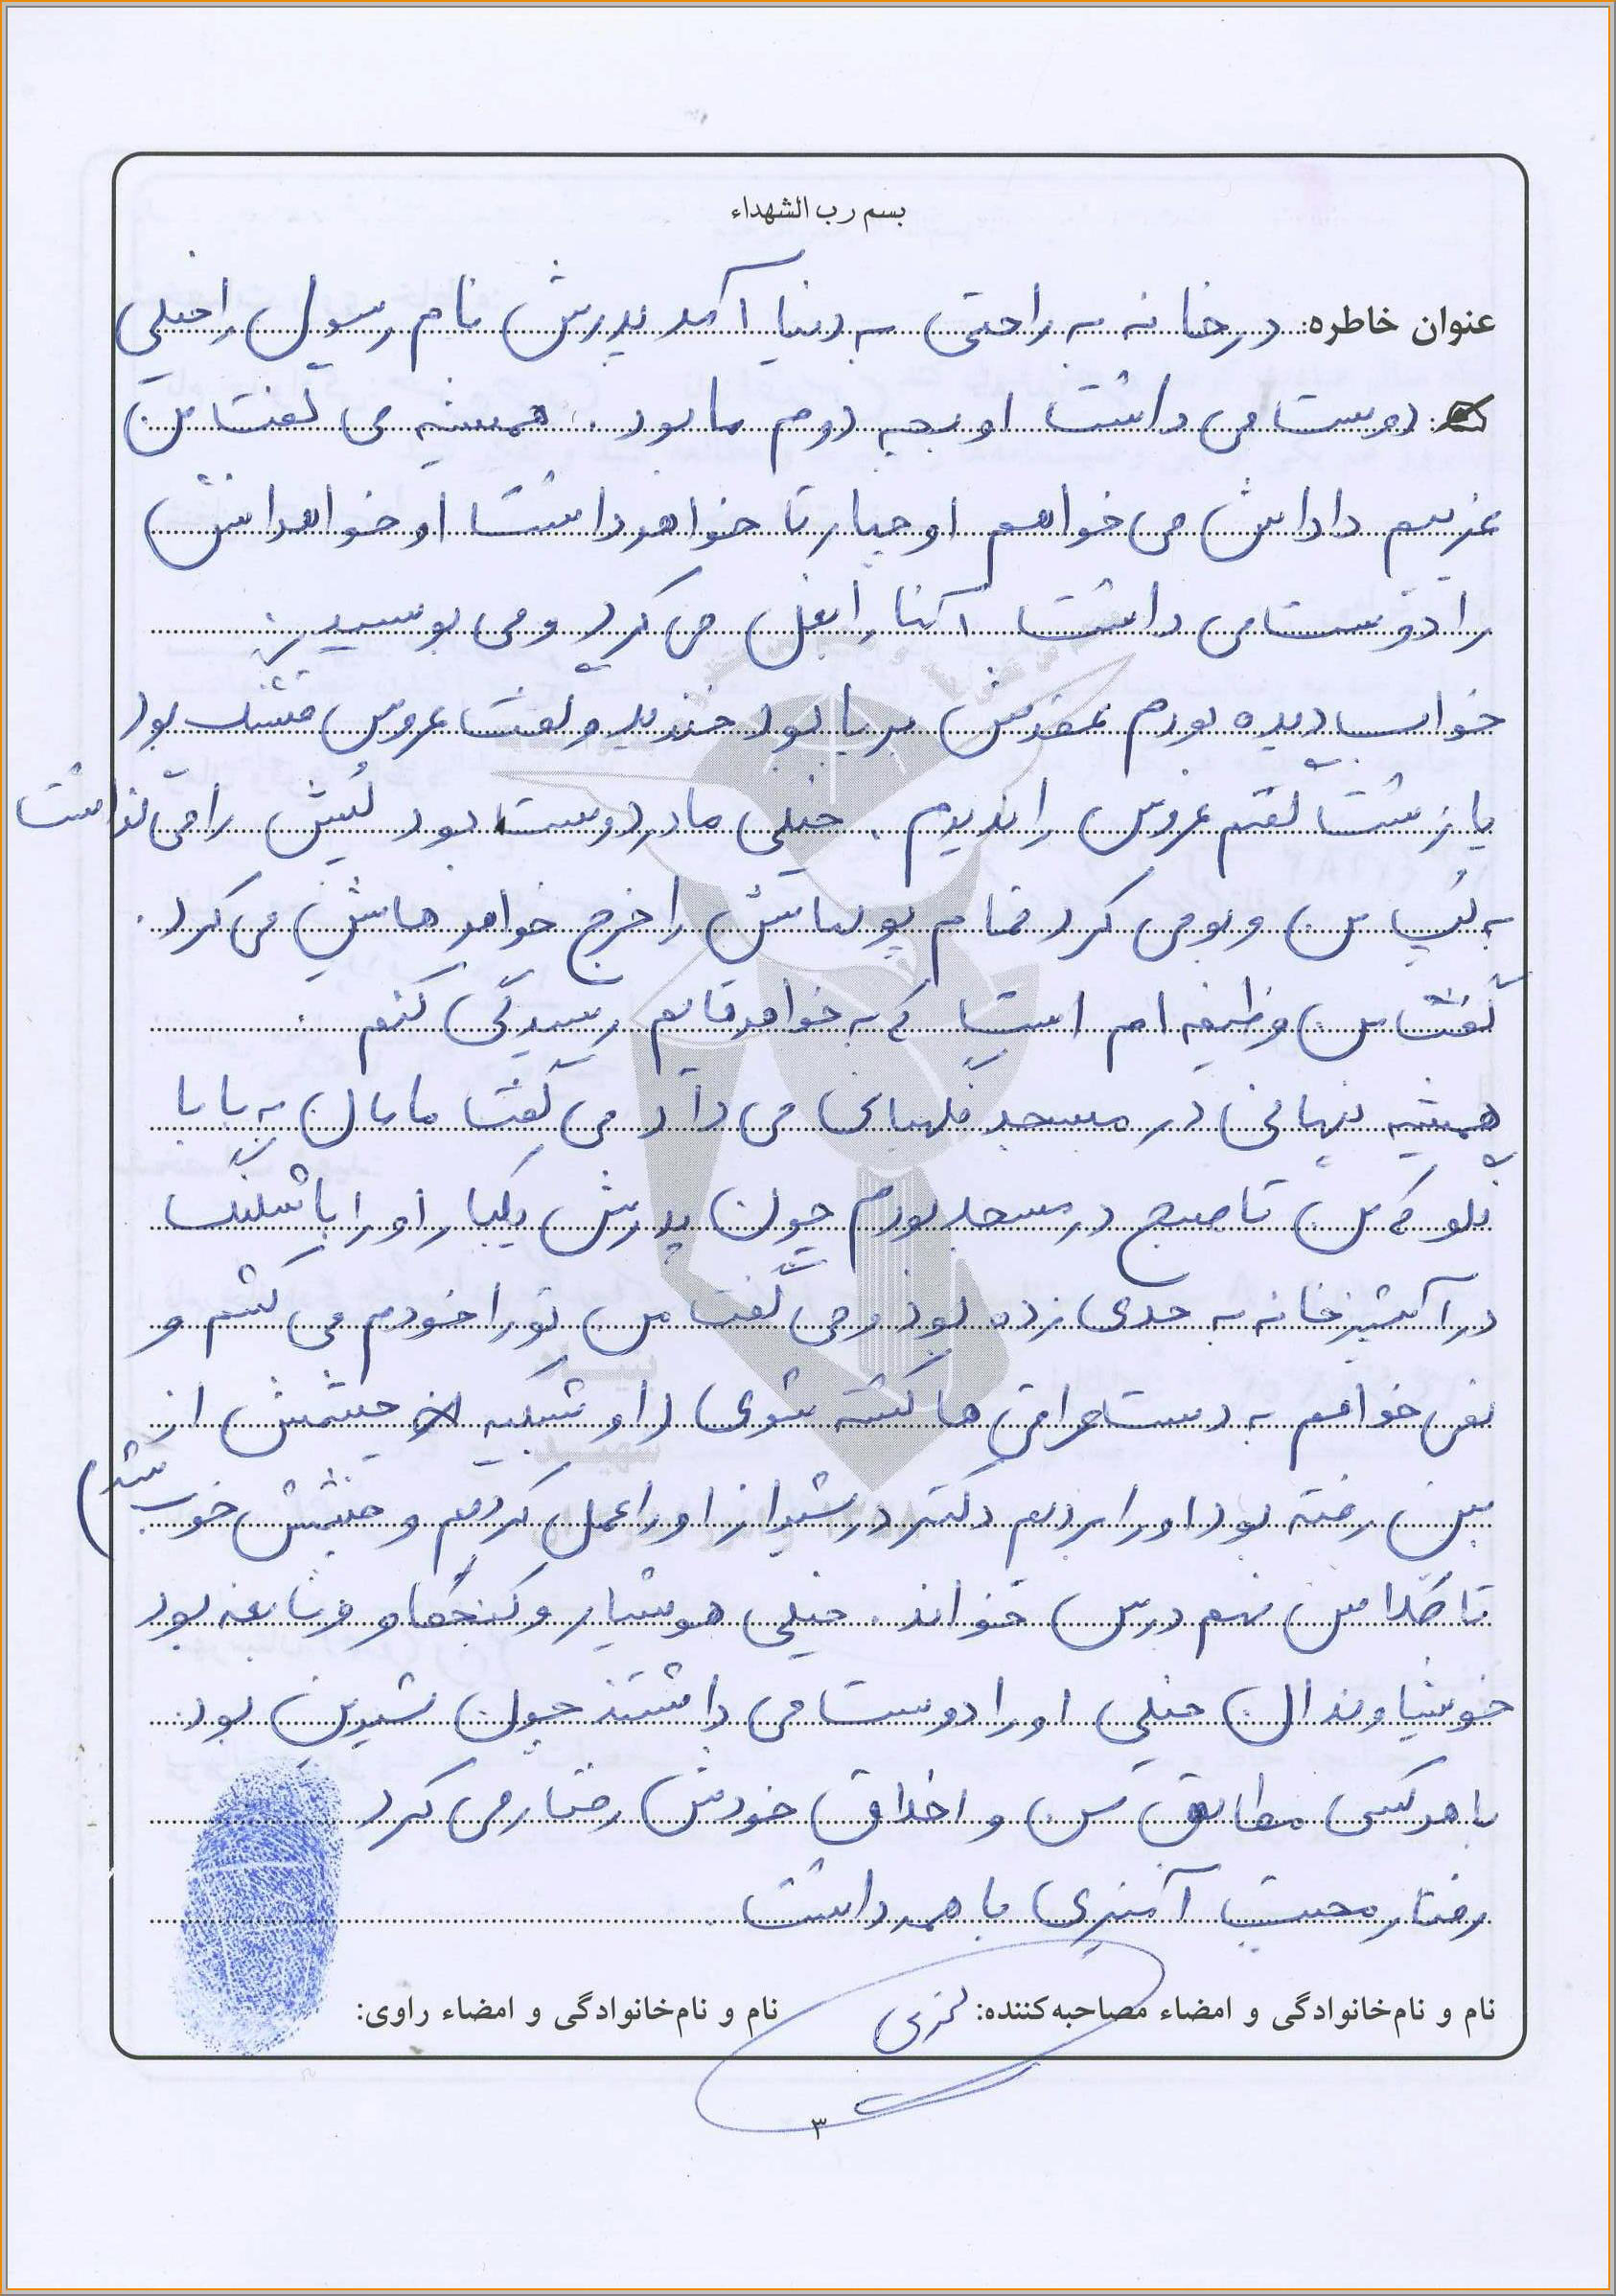 بسم رب الشهداء
عنوان خاطره: در خانه به راحتی به دنیا آمد پدرش نام رسول را خیلی
دوست می داشت او بچه دوم ما بود. همیشه می گفت من
عزیزم داداش می خواهم او چهار تا خواهر داشت او خواهرانش
را دوست می داشت آنها را بغل می کرد و می بوسید.
خواب دیده بودم عقدش برپا بود خندید و گفت عروس قشنگ بود
یا زشت گفتم عروس را ندیدم. خیلی مادر دوست بود را می گذاشت
به من و بو می کرد تمام پولهاش را خرج خواهرهاش می کرد.
گفت من وظیفه ام است که به خواهرهایم رسیدگی کنم.
همیشه پنهانی در مسجد نگهبانی می داد می گفت مامان به بابا
بگو که من تا صبح در مسجد بودم چون پدرش یکبار او را با شلنگ
در آشپزخانه به حدی زده بود و می گفت من تو را خودم می کشم و
نمی خواهم به دست عراقی ها کشته شوی (او شبکیه چشمش از
بین رفته بود او را بردیم دکتر در شیراز او را عمل کردیم و چشمش خوب شد)
تا کلاس نهم درس خواند. خیلی هوشیار و کنجکاو و نابغه بود
خوشاوندان خیلی او را دوست می داشتند چون شیرین بود.
با هر کسی مطابق سن و اخلاق خودش رفتار می کرد
رفتار محبت آمیزی با همه داشت
نام و نام‌خانوادگی و امضاء مصاحبه‌کننده: نام و نام‌خانوادگی و امضاء راوی:
۳